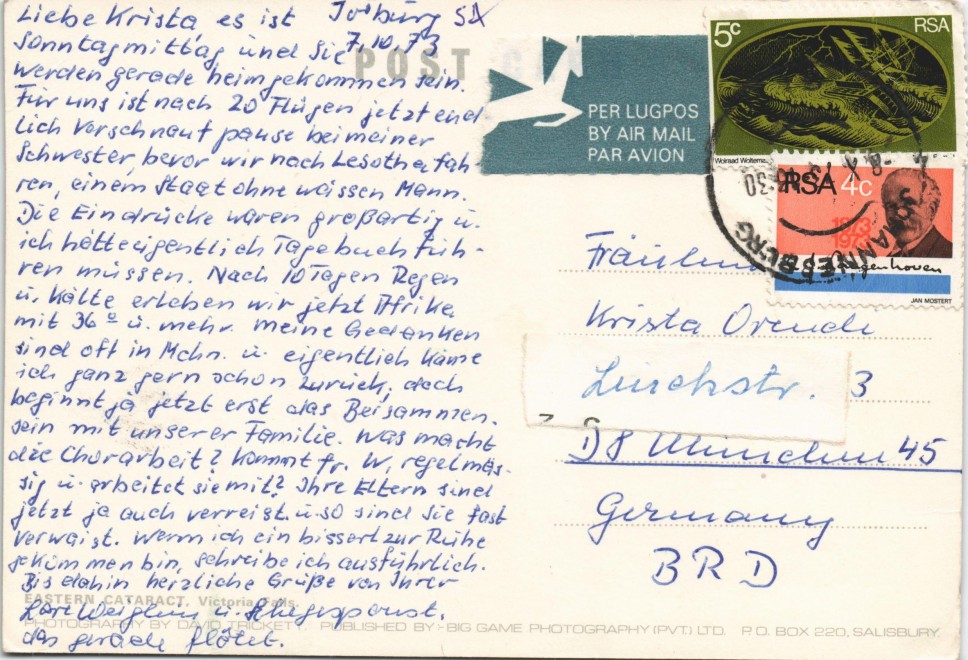 Liebe Krista, es ist Jo'burg SA
Sonntagmittag und Sie 7.10.73
werden gerade heimgekommen sein.
Für uns ist nach 20 Flügen jetzt end-
lich Verschnaufpause bei meiner
Schwester, bevor wir nach Lesotho fah-
ren, einem Staat ohne weissen Mann.
Die Eindrücke waren großartig u.
ich hätte eigentlich Tagebuch füh-
ren müssen. Nach 10 Tagen Regen
u. Kälte erleben wir jetzt Afrika
mit 36° u. mehr. Meine Gedanken
sind oft in Mchn. u. eigentlich käme
ich ganz gern schon zurück, doch
beginnt ja jetzt erst das Beisammen-
sein mit unserer Familie. Was macht
die Chorarbeit? Kommt Fr. W. regelmäs-
sig u. arbeitet sie mit? Ihre Eltern sind
jetzt ja auch verreist u. so sind Sie fast
verwaist. Wenn ich ein bisserl zur Ruhe
gekommen bin, schreibe ich ausführlich.
Bis dahin herzliche Grüße von Ihrer
u.
das gerade flötet.
POST
PER LUGPOS
BY AIR MAIL
PAR AVION
5c RSA
Wolraad Woltema
RSA 4c
1873
1973
genhoven
JAN MOSTERT
JOHANNESBURG
Fräulein
Krista Orende
3
D8 München 45
Germany
BRD
EASTERN CATARACT, Victoria Falls.
PHOTOGRAPHY BY DAVID TRICKETT. PUBLISHED BY:- BIG GAME PHOTOGRAPHY (PVT) LTD. P.O. BOX 220, SALISBURY.